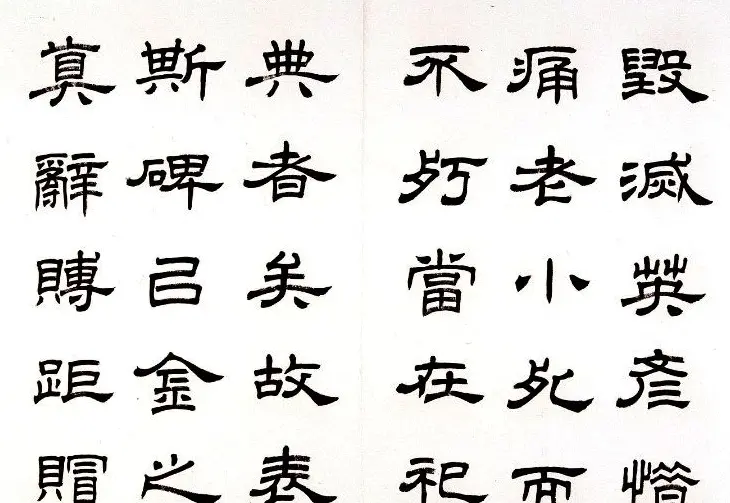 毀滅英彥憯
痛老小死而
不㱙當在祀
典者矣故表
斯碑已金之
真辭賻距賵